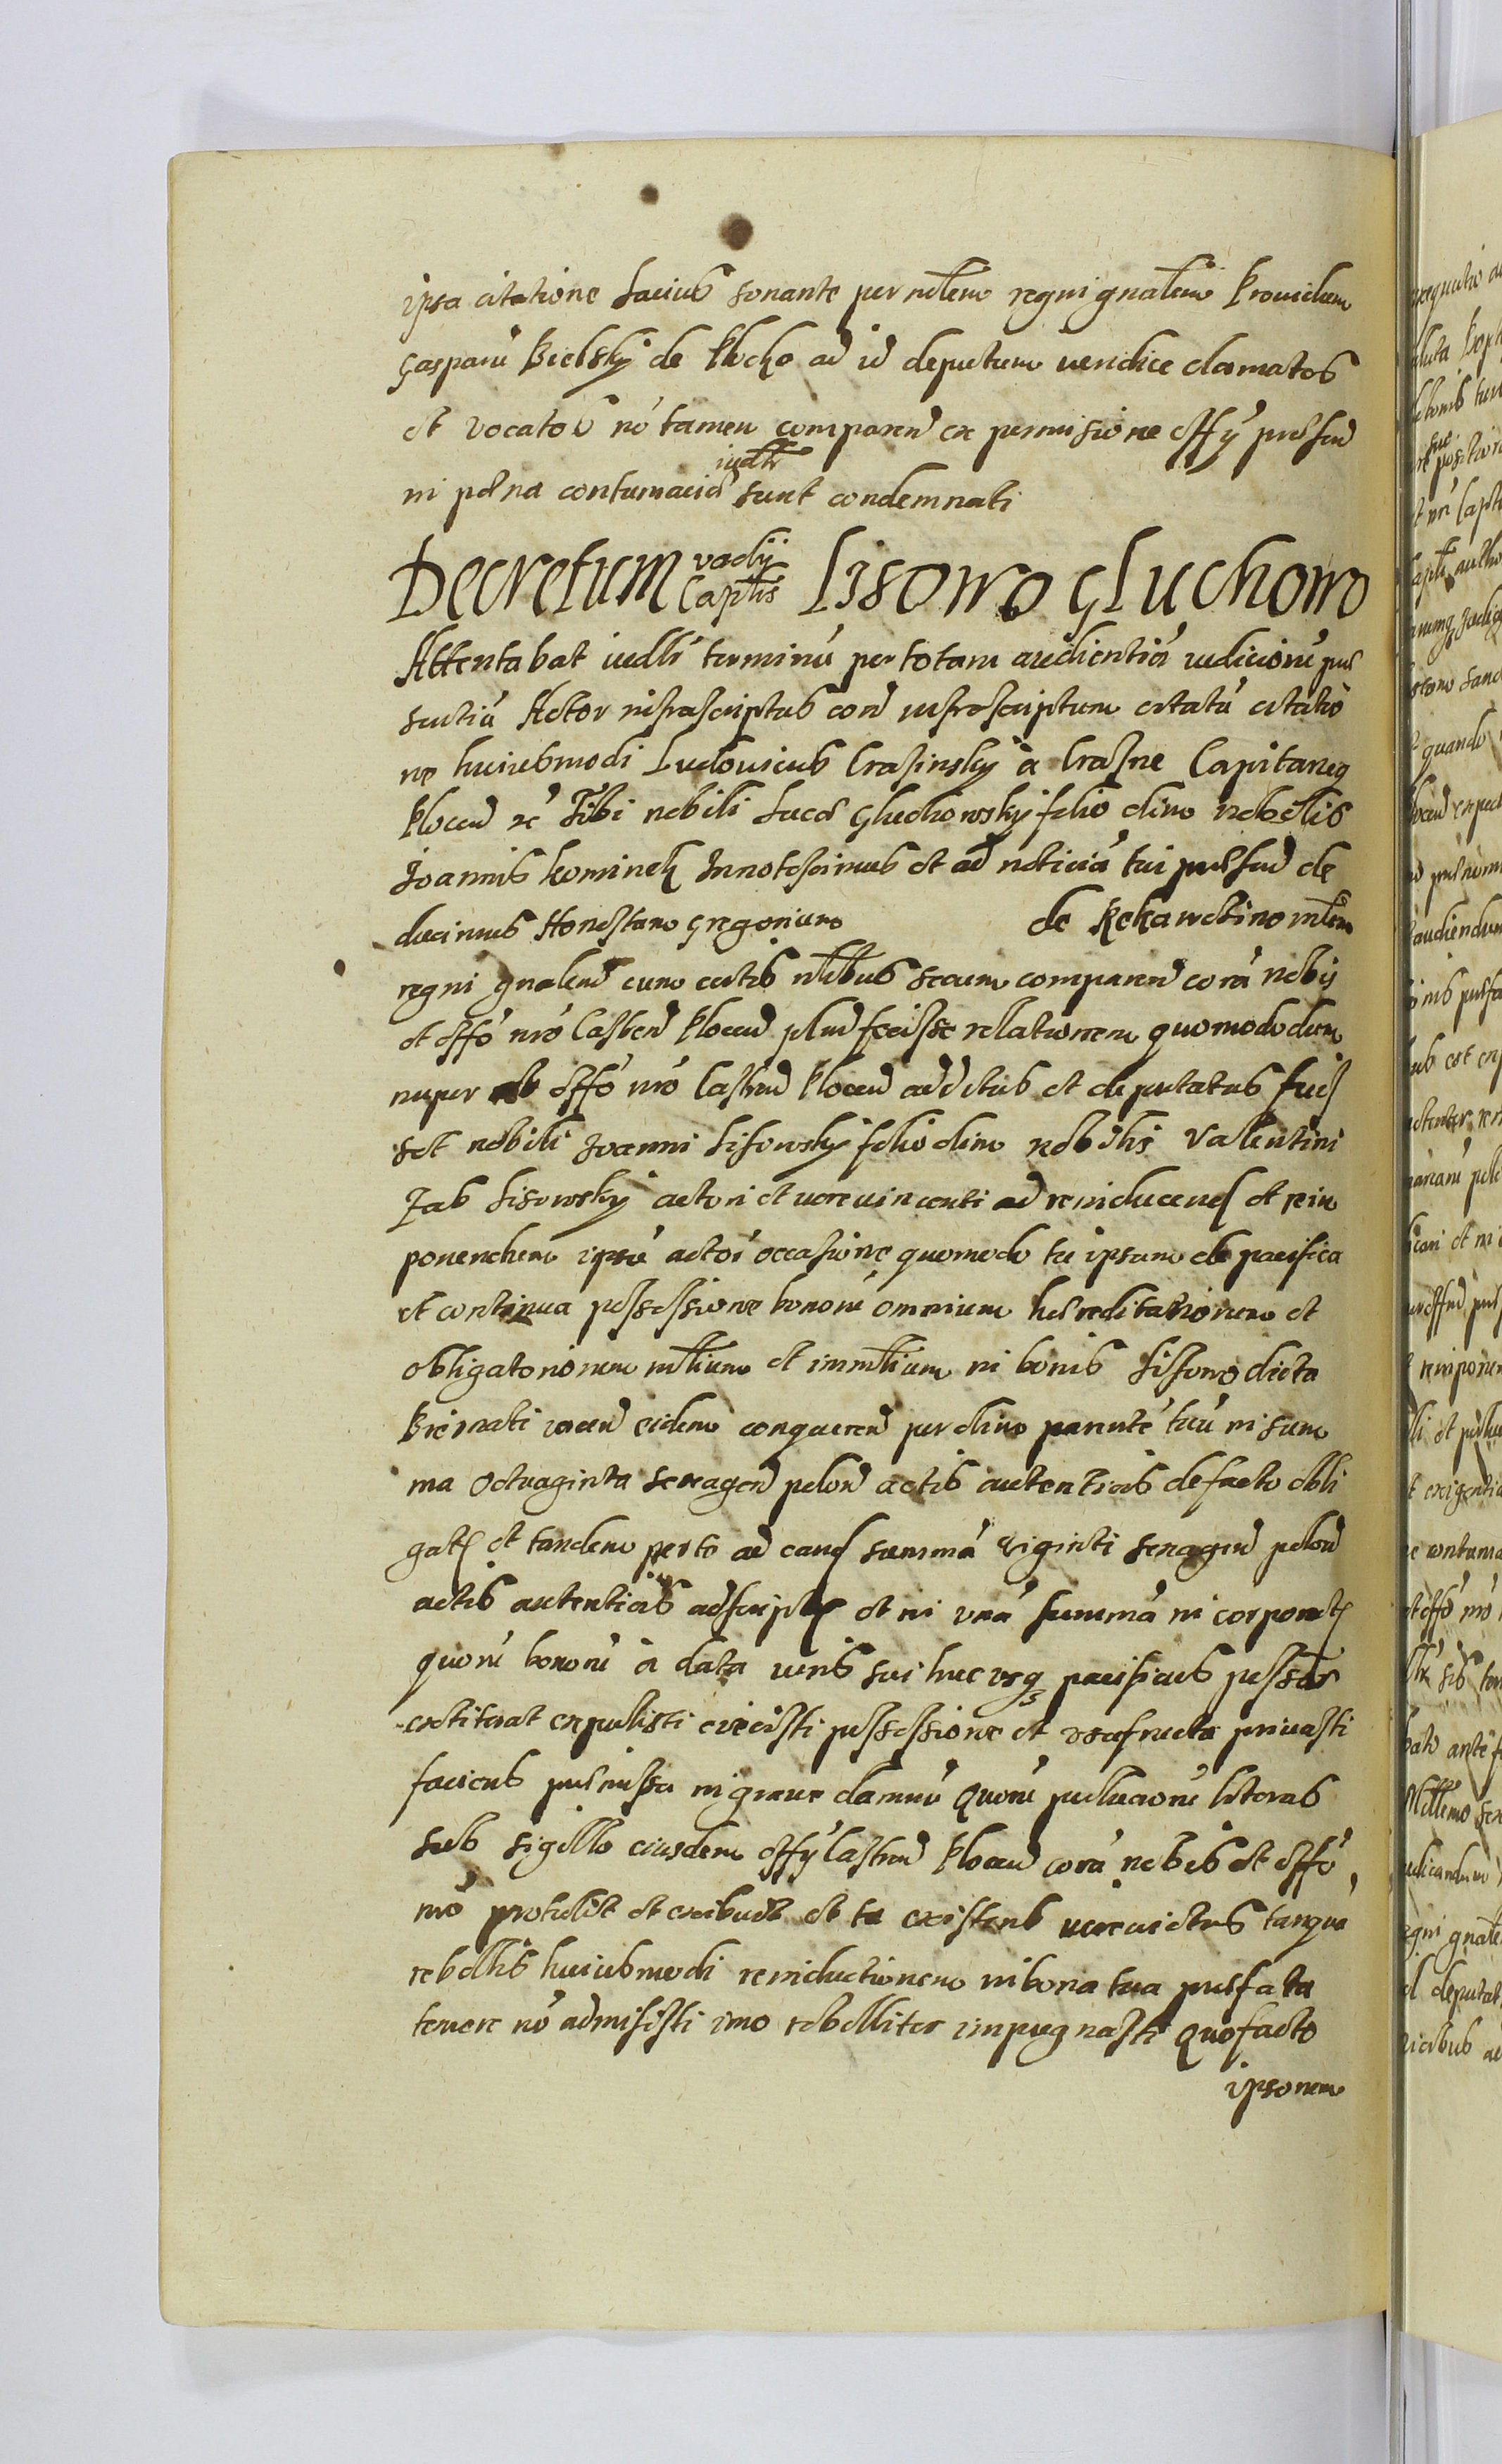 ipsa citatione lacius sonante per mlem regni gnalem Prouidum
Gasparu Bielsky de Plocko ad id deputum veridice clamatos
et vocatos nō tamen comparen ex permisione offy presen
in pena contumacie iudtr sunt condemnati
Decretum vadij Captis Lisowo Gluchowo
Attentabat iudlr terminū per totam audientiā iudiciorū pre
sentiū Actor infrascriptus con infrascriptum citatū citatio
ne huiusmodi Ludouicus Crasinsky a Crasne Capitaneq
Plocen re Tibi nobili Luce Gluchowsky filio olim nobilis
Joannis kominek Innotescimus et ad noticiā tui presen de
ducimus Honestum Gregorium de Rekawctino mlem
regni gnalem cum certis nlibus secum comparen corā nobis
et offo nrō Castren Plocen plen fecisse relationem quomodo dum
nuper ab offo nrō Castren Plocen additus et deputatus fuis
set nobili Joanni Lisowsky filio olim nobilis Valentini
Jab Lisowsky actori et vere vincenti ad reinducend et reim
ponendum ipsū actōr occasione quomodo tu ipsum de pacifica
et continua possessione bonorū omnium hereditariorum et
obligatoriorum mlium et immlium in bonis Lissowo dicta
Biernati vocen eidem conqueren per olim parentē tuū in sum
ma Octuaginta sexagen polon actis autenticis de facto obli
gat et tandem per te ad eand summā viginti sexagen polon
actis autenticis adscript et in vnā summā in corporat
quorū bonorū a data veris sui huc vsq pacificus possessor
extiterat expulisti eiecisti possessione et vsufructu priuasti
faciens premissa in graue damnū Quorū productionū literas
sub sigillo eiusdem offy Castren Plocen corā nobis et offo
nrō protulit et exibuit et tu existens vere victus tanquā
rebellis huiusmodi reinductionem in bona tua prefata
temere nō admisisti imo rebelliter impugnasti Quo facto
ipsonem